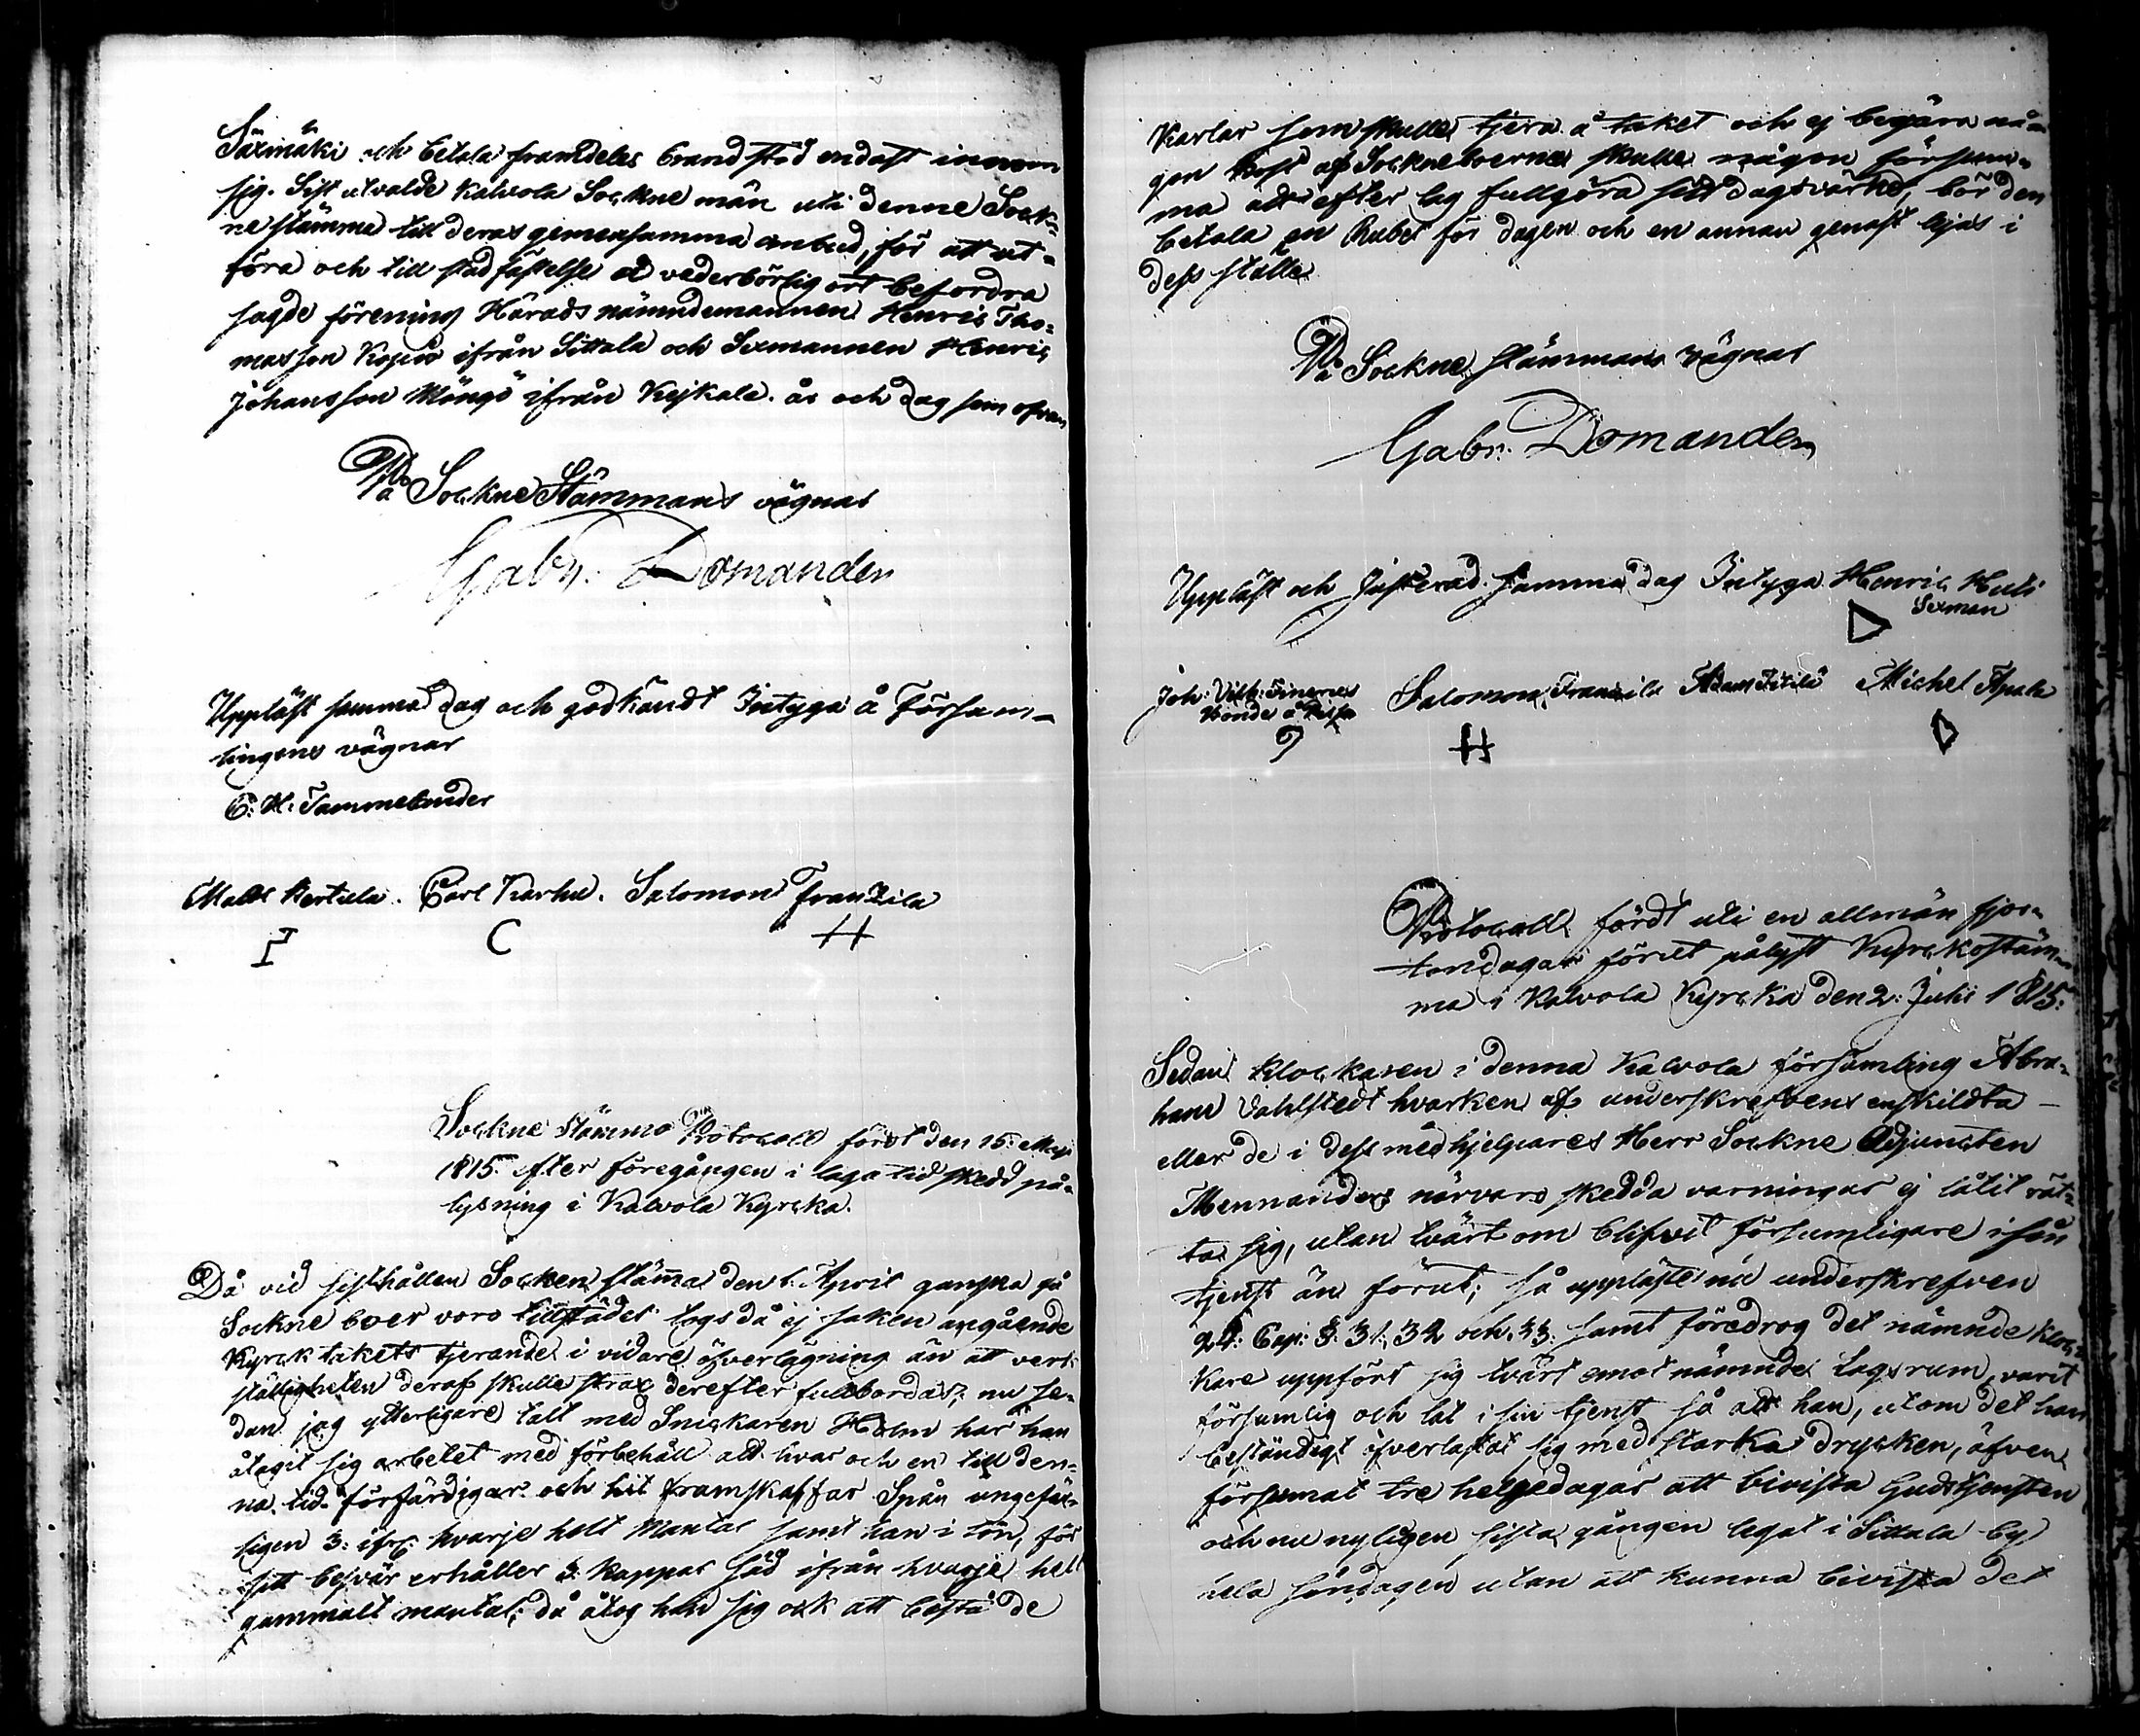 Säxmäki och betala framdeles brandstod endast innom
sig. Sist utvalde Kalvola Sockne män uti denne Sock-
ne stämma till deras gemensamma ombud, för att ut-
föra och till stadfästelse å vederbörlig ort befordra
sagde förening Härads nämndemannen Henric Tho-
masson Kopio ifrån Sittala och Sexmannen Henric
Johansson Möngö ifrån Kejkala. år och dag som ofvan
På Sockne Stämmans vägnar
Gabr. Domander
Uppläst samma dag och godkändt Intyga å Försam-
lingens vägnar
C: H: Tammelander
Matts Hertula. Carl Karhu. Salomon Franzila
I C H
Sockne Stämmo Protocoll fördt den 15: Maji
1815 efter föregången i laga tid skedd på-
lysning i Kalvola Kyrcka.
Då vid sisthållen Socken stämma den 1. April ganska få
Sockne boer voro tillstädes togs då ej saken angående
Kyrck takets tjerande i vidare öfverlägning än att verk-
ställigheten deraf skulle strax derefter fullbordas; nu se-
dan jag ytterligare talt med Snickaren Holm har han
åtagit sig arbetet med förbehåll att hvar och en till den-
na tid förfärdigar och hit framskaffar Spån ungefär-
ligen 3: ifr: hvarje helt Mantal samt han i lön, för
sitt besvär erhåller 3 kappar Säd ifrån hvarje helt
gammalt mantal; då åtog han sig ock att bestå de
Karlar som skulle tjera å taket och ej begära nå-
gon kost af Sockneboerna skulle någon försum-
ma att efter lag fullgöra sitt dagsvärke, bör den
betala en Rubel för dagen och en annan genast lejas i
dess ställe
På Sockne Stämmans vägnar
Gabr. Domander
Uppläst och Justerad samma dag Intyga Henric Huti
Sexman
Joh: Vilh: Finerus Salomon Franzila Adam Itilä Michel Apala
Bonde å
H
Protocoll fördt uti en allmän fjor-
tondagar förut pålyst Kyrckostäm-
ma i Kalvola Kyrcka den 2: Julii 1815.
Sedan Klockaren i denna Kalvola församling Abra-
ham Dahlstedt hvarken af underskrefvens enskildta
eller de i dess medhjelpares Herr Sockne Adjuncten
Mennanders närvaro skedda varningar ej låtit rät-
ta sig, utan tvärt om blifvit försumligare i sin
tjenst än förut; så upplästes nu underskrefven
24: Cap: §: 31, 32 och 33: samt föredrog det nämnde kloc-
kare uppfört sig tvärt emot nämnde Lagsrum, varit
försumlig och lat i sin tjenst så att han, utom det han
beständigt öfverlastat sig med starka drycken, äfven
försumat tre helgedagar att bivista Gudstjensten
och nu nyligen sista gången legat i Sittala by
hela söndagen utan att kunna bivista det